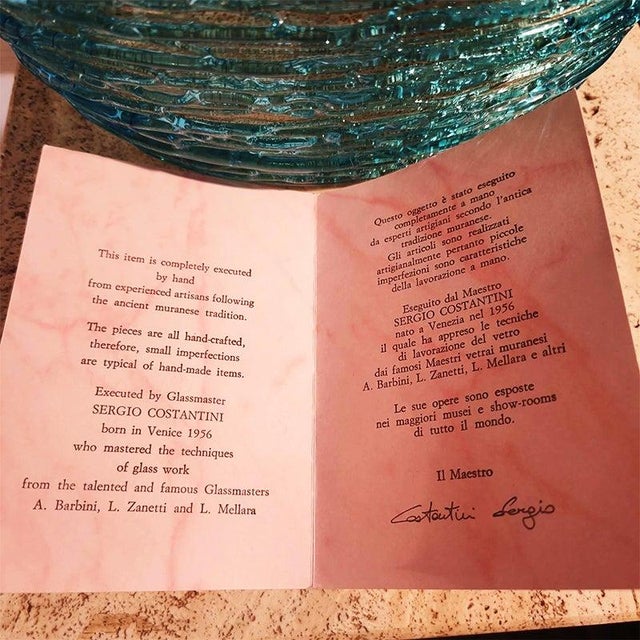 This item is completely executed
by hand
from experienced artisans following
the ancient muranese tradition.
The pieces are all hand-crafted,
therefore, small imperfections
are typical of hand-made items.
Executed by Glassmaster
SERGIO COSTANTINI
born in Venice 1956
who mastered the techniques
of glass work
from the talented and famous Glassmasters
A. Barbini, L. Zanetti and L. Mellara
Questo oggetto è stato eseguito
completamente a mano
da esperti artigiani secondo l'antica
tradizione muranese.
Gli articoli sono realizzati
artigianalmente pertanto piccole
imperfezioni sono caratteristiche
della lavorazione a mano.
Eseguito dal Maestro
SERGIO COSTANTINI
nato a Venezia nel 1956
il quale ha appreso le tecniche
di lavorazione del vetro
dai famosi Maestri vetrai muranesi
A. Barbini, L. Zanetti, L. Mellara e altri
Le sue opere sono esposte
nei maggiori musei e show-rooms
di tutto il mondo.
Il Maestro
Costantini Sergio